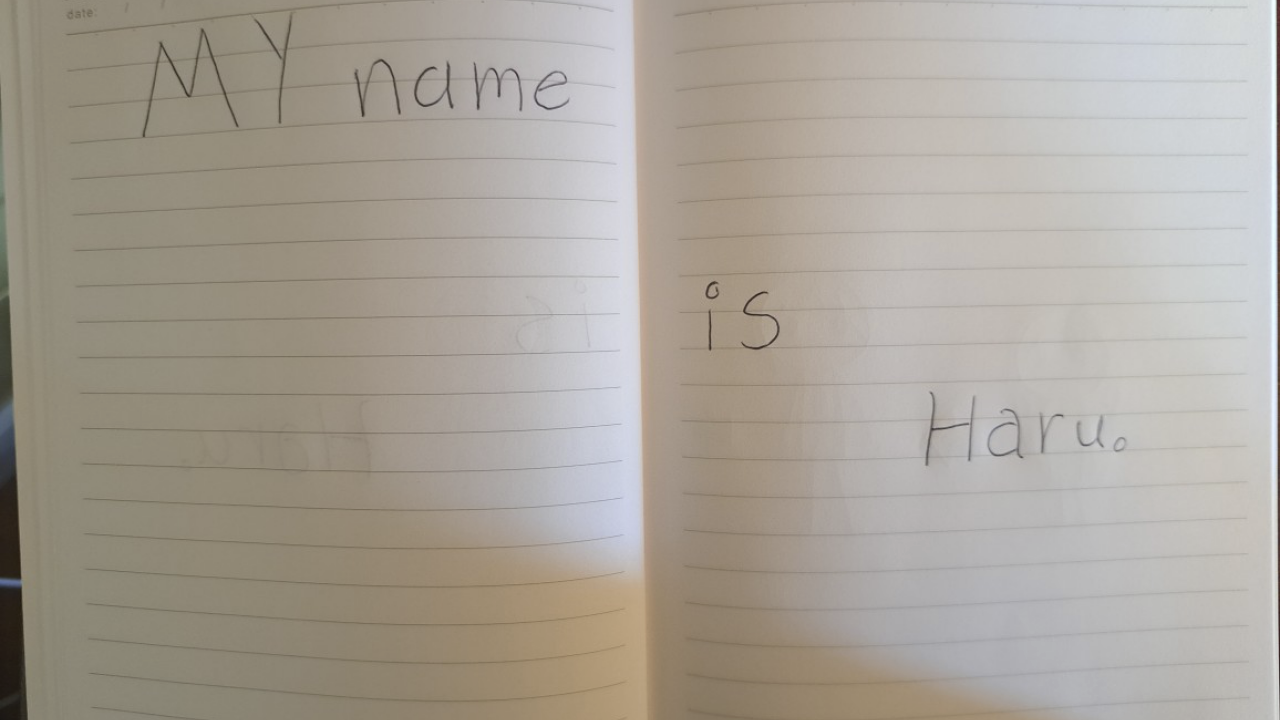 date:
MY name
is
Haru.